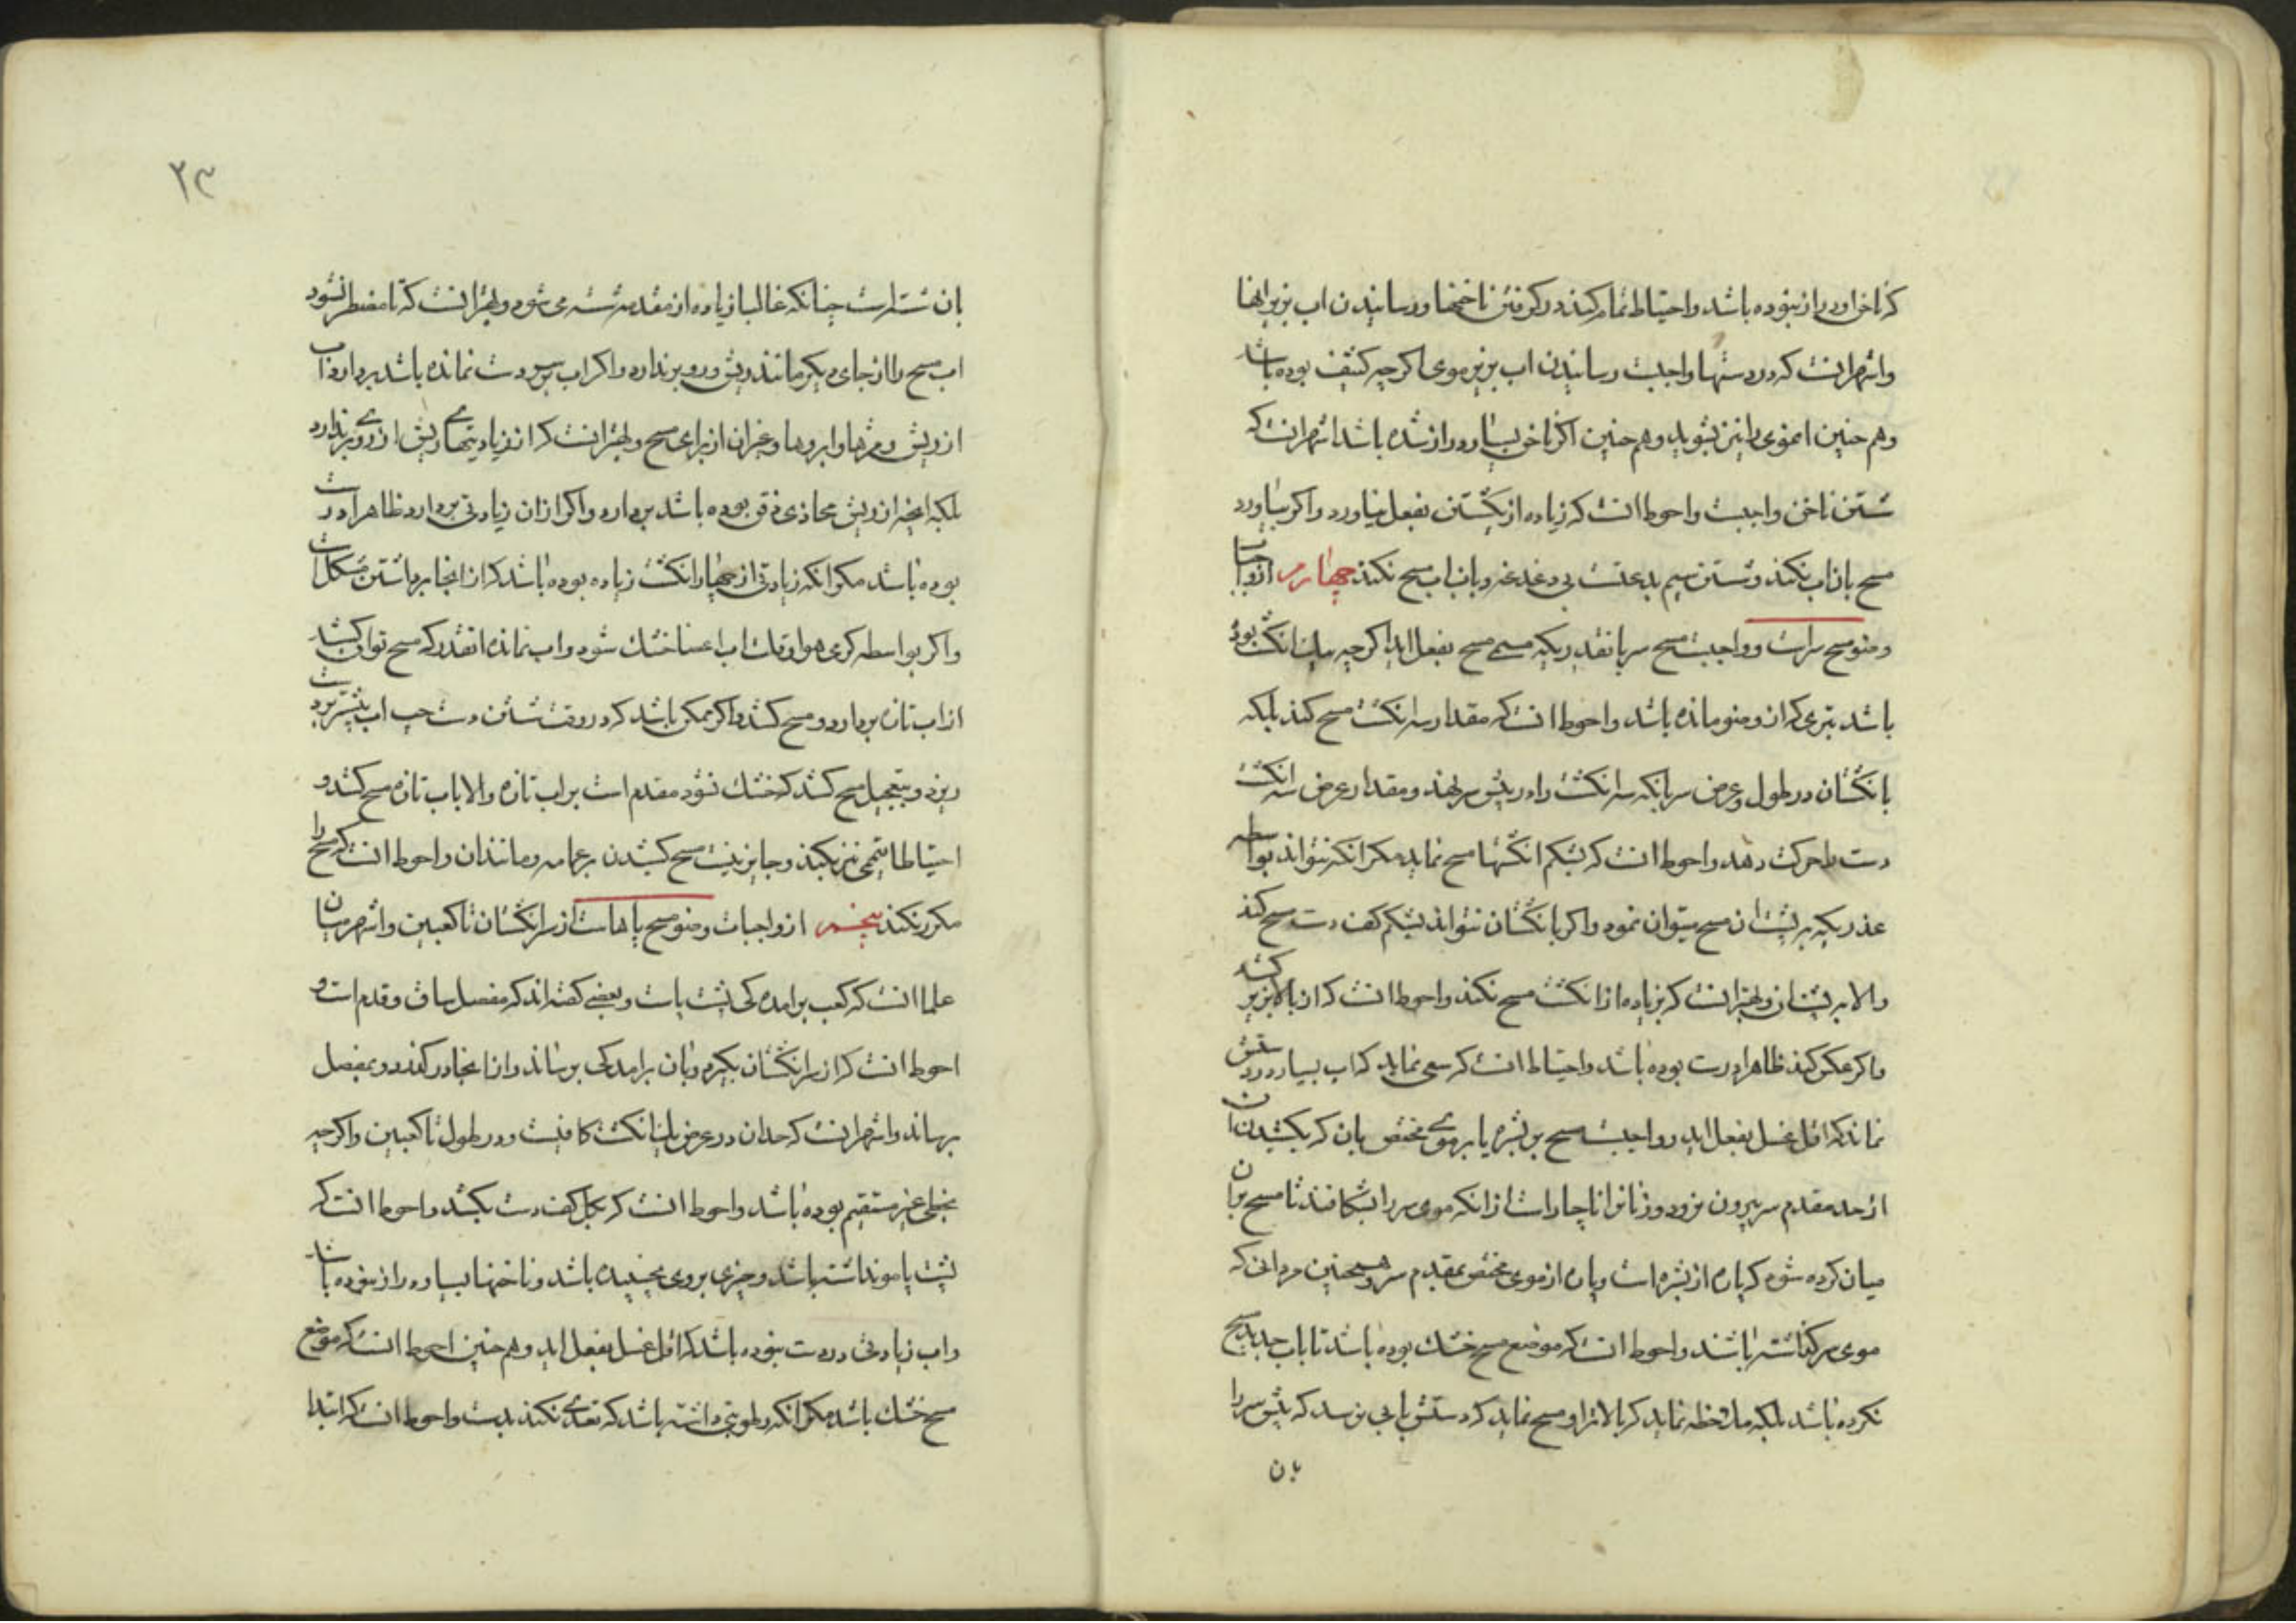 که ناخن او دراز نبوده باشد و احتیاط تمام کند در گرفتن ناخنها و رسانیدن اب بزیر انها
و اشهر انست که در دستها واجبست رسانیدن اب بزیر موی اگر چه کثیف بوده باشد
و هم چنین ان موی را نیز بشوید و هم چنین اگر ناخن بسیار دراز شده باشد اشهر انست که
شستن ناخن واجبست و احوط انست که زیاده از یک شستن بفعل نیاورد و اگر بیاورد
مسح بان اب نکند و شستن سیم بدعتست بی دغدغه و بان اب مسح نکند چهارم از واجبات
وضو مسح سراست و واجبست مسح سر بانقدریکه مسمی مسح بفعل اید اگر چه بیک انگشت بوده
باشد بتری که از وضو مانده باشد و احوط انست که مقدار سه انگشت مسح کند بلکه
بانگشتان در طول و عرض سر بانکه سه انگشت را در پیش سر نهد و مقدار عرض سه انگشت
دست را حرکت دهد و احوط انست که بشکم انگشتها مسح نماید مگر انکه نتواند بواسطه
عذریکه بر پشت ان مسح میتوان نمود و اگر بانگشتان نتواند بشکم کف دست مسح کند
و الا بر پشت ان و بهتر انست که بزیاده از انگشت مسح نکند و احوط انست که از بالا بزیر کشد
و اگر عکس کند ظاهرا درست بوده باشد و احتیاط انست که سعی نماید که اب بسیار در دستش
نماند که اقل غسل بفعل اید و واجبست مسح بر بشره یا بر موی مختص بان که بکشیدن ان
از حد مقدم سر بیرون نرود و زنانرا ناچار است از انکه موی سر را بشکافند تا مسح بر ان
میان کرده شود که پاره از بشره است و پاره از موی مختص بمقدم سر و همچنین مردانی که
موی سر گذاشته باشند و احوط انست که موضع مسح خشک بوده باشد تا باب جدید مسح
نکرده باشد بلکه ملاحظه نماید که بالاتر او مسح نماید که دستش بابی نرسد که پیش سر را
بان
۲۳
بان شسته است چنانکه غالبا زیاده از مقدم شسته می شود و بهتر انست که تا مضطر نشود
اب مسح را از جای دیگر مانند ریش و رو برندارد و اگر اب بر سر دست نمانده باشد بردارد اب
از ریش و مژها و ابروها و غیر ان از برای مسح و بهتر انست که از زیادیتهای ریش از روی برندارد
بلکه انچه از ریش محاذی ذقن بوده باشد بردارد و اگر از ان زیادتی بردارد ظاهرا درست
بوده باشد مگر انکه زیادتی از چهار انگشت زیاده بوده باشد که از انجا برداشتن مشکل است
و اگر بواسطه گرمی هوا و قلت اب اعضا خشک شود و اب نمانده انقدر که مسح توان کشید
از اب تازه بردارد و مسح کشد و اگر ممکن باشد که در وقت شستن دست چپ اب بیشتر بر دست
ریزد و بتعجیل مسح کشد که خشک نشود مقدم است بر اب تازه و الا باب تازه مسح کشد و
احتیاطا تیممی نیز بکند و جایز نیست مسح کشیدن بر عمامه و مانند ان و احوط انست که مسح را
مکرر نکند پنجم از واجبات وضو مسح پاهاست از سر انگشتان تا کعبین و اشهر میان
علما انست که کعب برامدگی پشت پاست و بعضی گفته اند که مفصل ساق و قدم است و
احوط انست که از سر انگشتان بگیرد و بان برامدگی برساند و از انجا در گذرد و بمفصل
برساند و اشهر انست که حد ان در عرض بیک انگشت کافیست و در طول تا کعبین و اگر چه
بخطی غیر مستقیم بوده باشد و احوط انست که بکل کف دست بکشد و احوط انست که
پشت پا مو نداشته باشد و چیزی بروی نچسبیده باشد و ناخنها بسیار دراز نبوده باشد
و اب زیادتی در دست نبوده باشد که اقل غسل بفعل اید و هم چنین احوط انست که موضع
مسح خشک باشد مگر انکه رطوبتی داشته باشد که تعدی نکند بدست و احوط انست که ابتدا